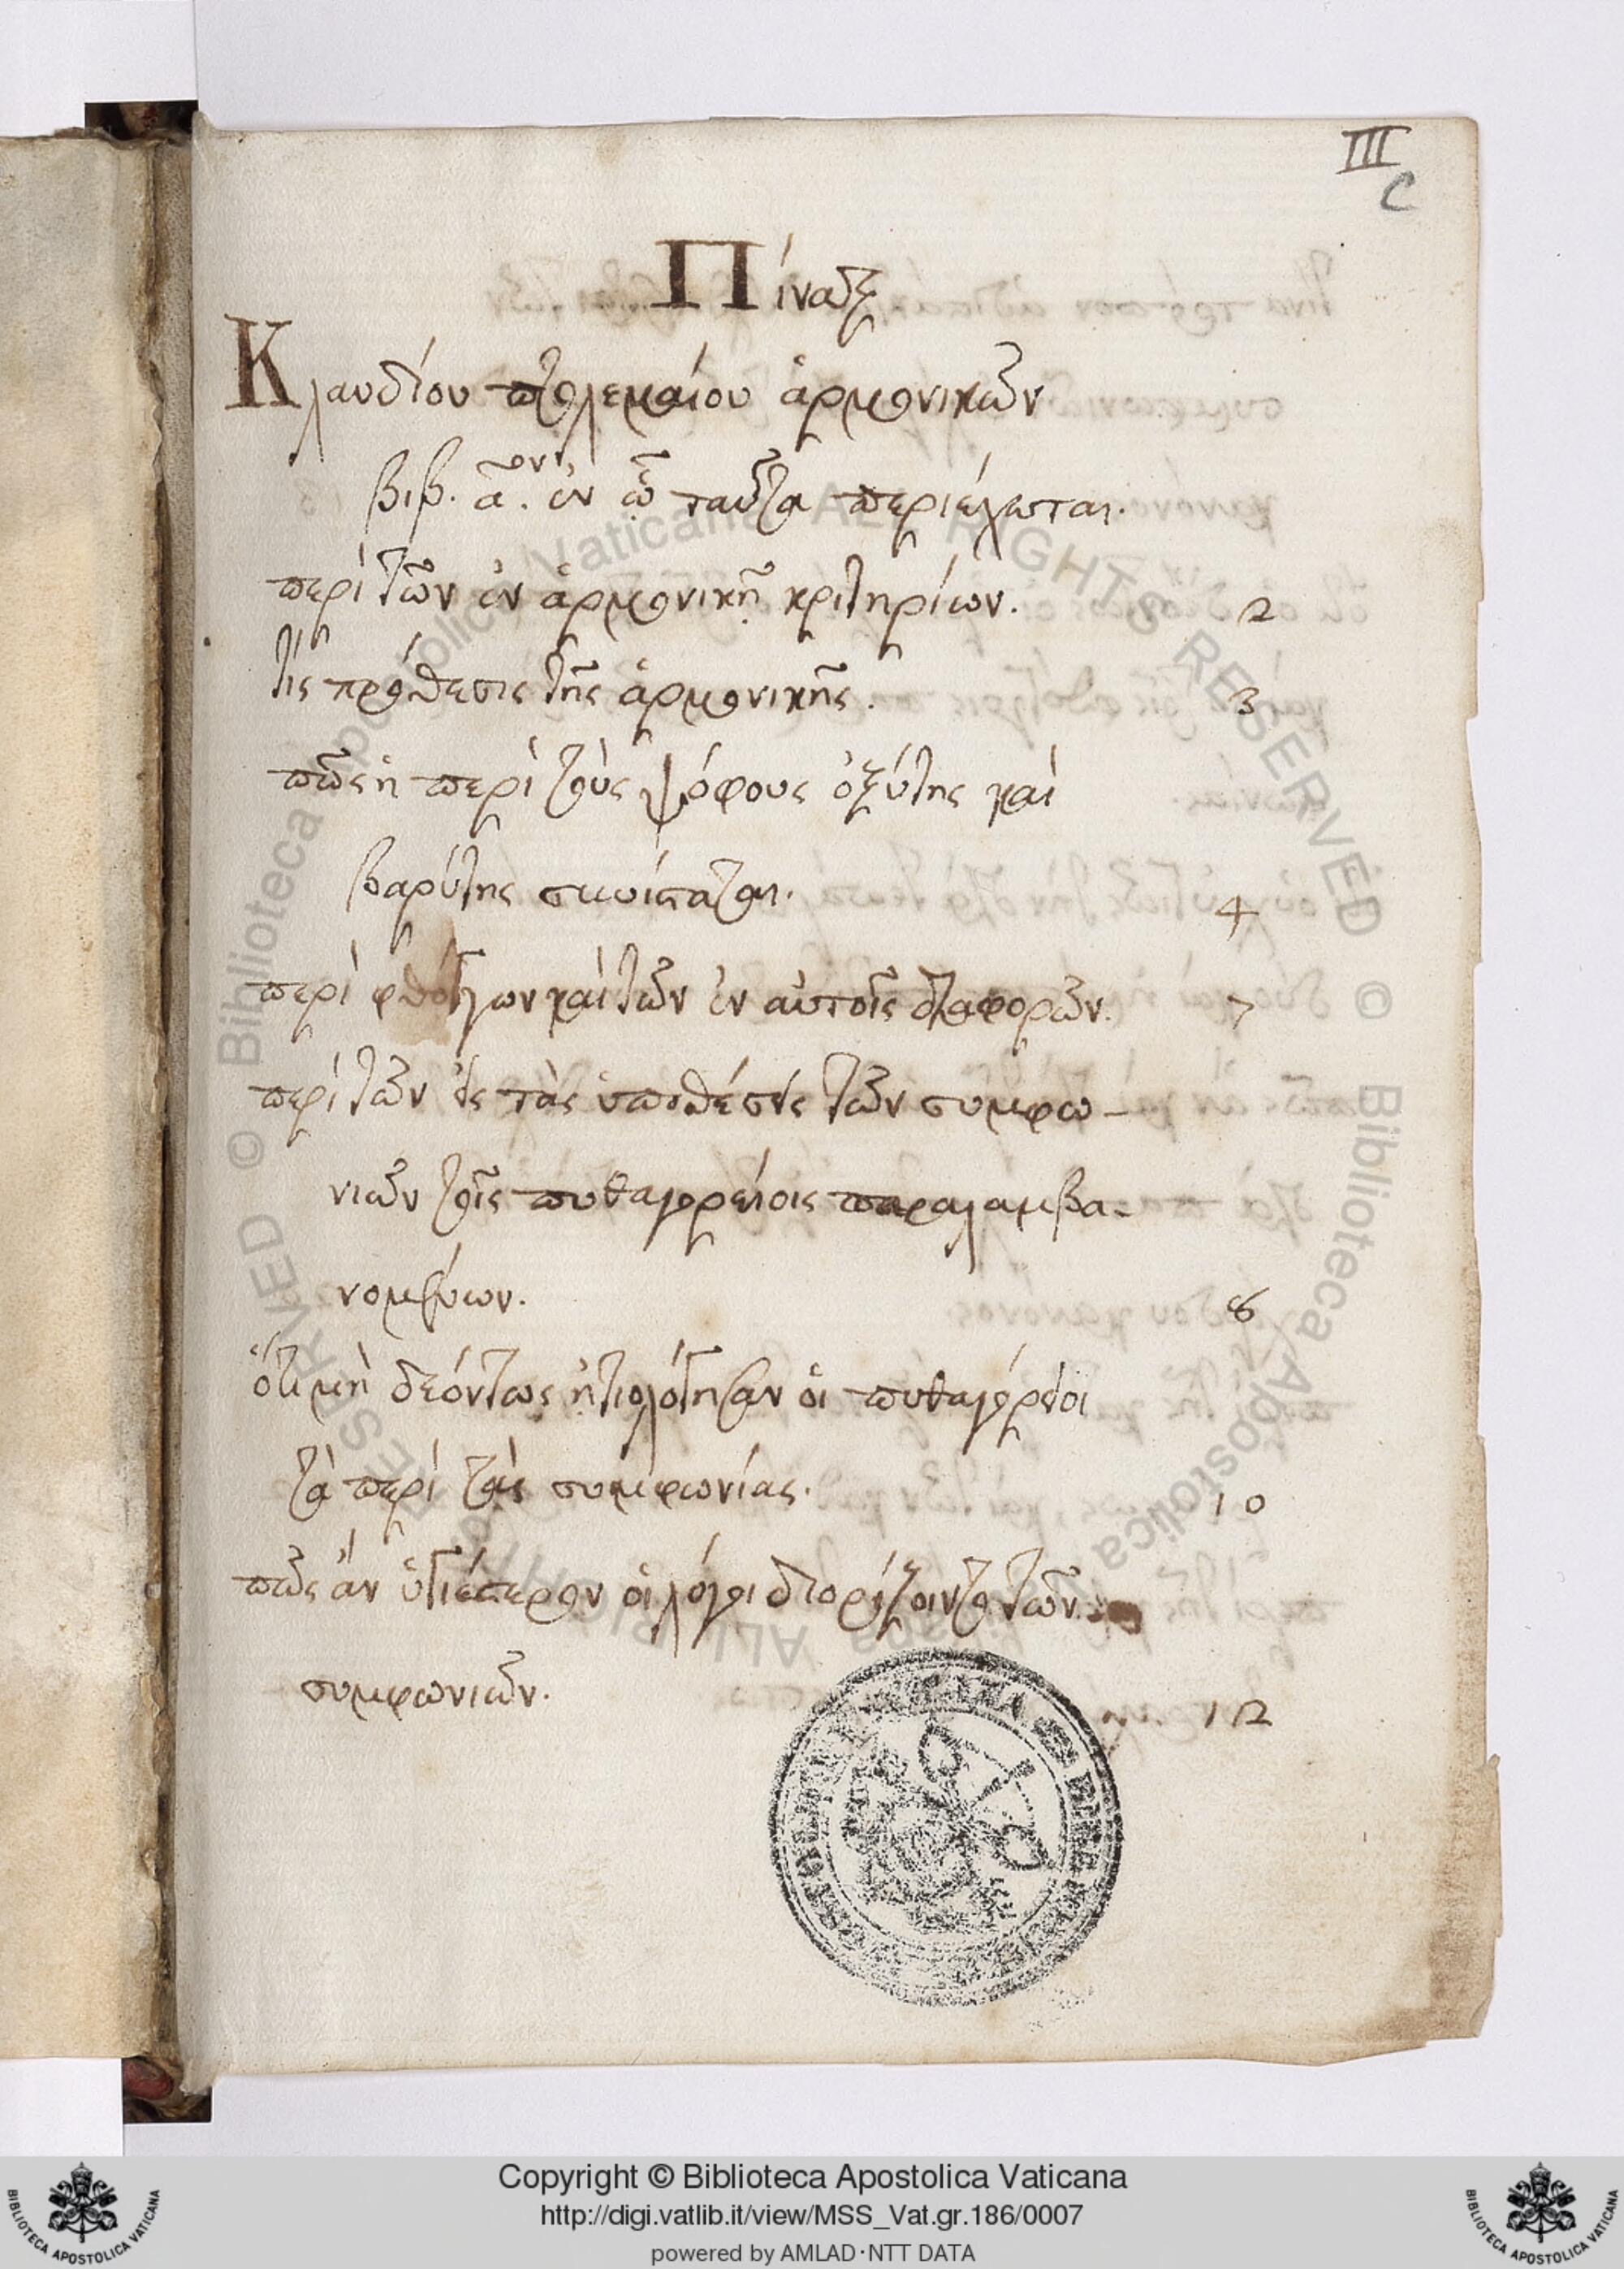 III
C
Πίναξ
Κλαυδίου πτολεμαίου ἁρμονικῶν
βιβ. ᾱ^ον. ἐν ᾧ ταῦτα περιέχεται.
περὶ τῶν ἐν ἁρμονικῇ κριτηρίων. 2
τίς πρόθεσις τῆς ἁρμονικῆς. 3
πῶς ἡ περὶ τοὺς ψόφους ὀξύτης καὶ
βαρύτης συνίσταται. 4
περὶ φθόγγων καὶ τῶν ἐν αὐτοῖς διαφορῶν. 7
περὶ τῶν εἰς τὰς ὑποθέσεις τῶν συμφω-
νιῶν τοῖς πυθαγορείοις παραλαμβα-
νομένων. 8
ὅτι μὴ δεόντως ᾐτιολόγησαν οἱ πυθαγόρειοι
τὰ περὶ τὰς συμφωνίας. 10
πῶς ἂν ὑγιέστερον οἱ λόγοι διορίζοιντο τῶν
συμφωνιῶν. 12
Copyright © Biblioteca Apostolica Vaticana
http://digi.vatlib.it/view/MSS_Vat.gr.186/0007
powered by AMLAD·NTT DATA
BIBLIOTECA APOSTOLICA VATICANA
BIBLIOTECA APOSTOLICA VATICANA